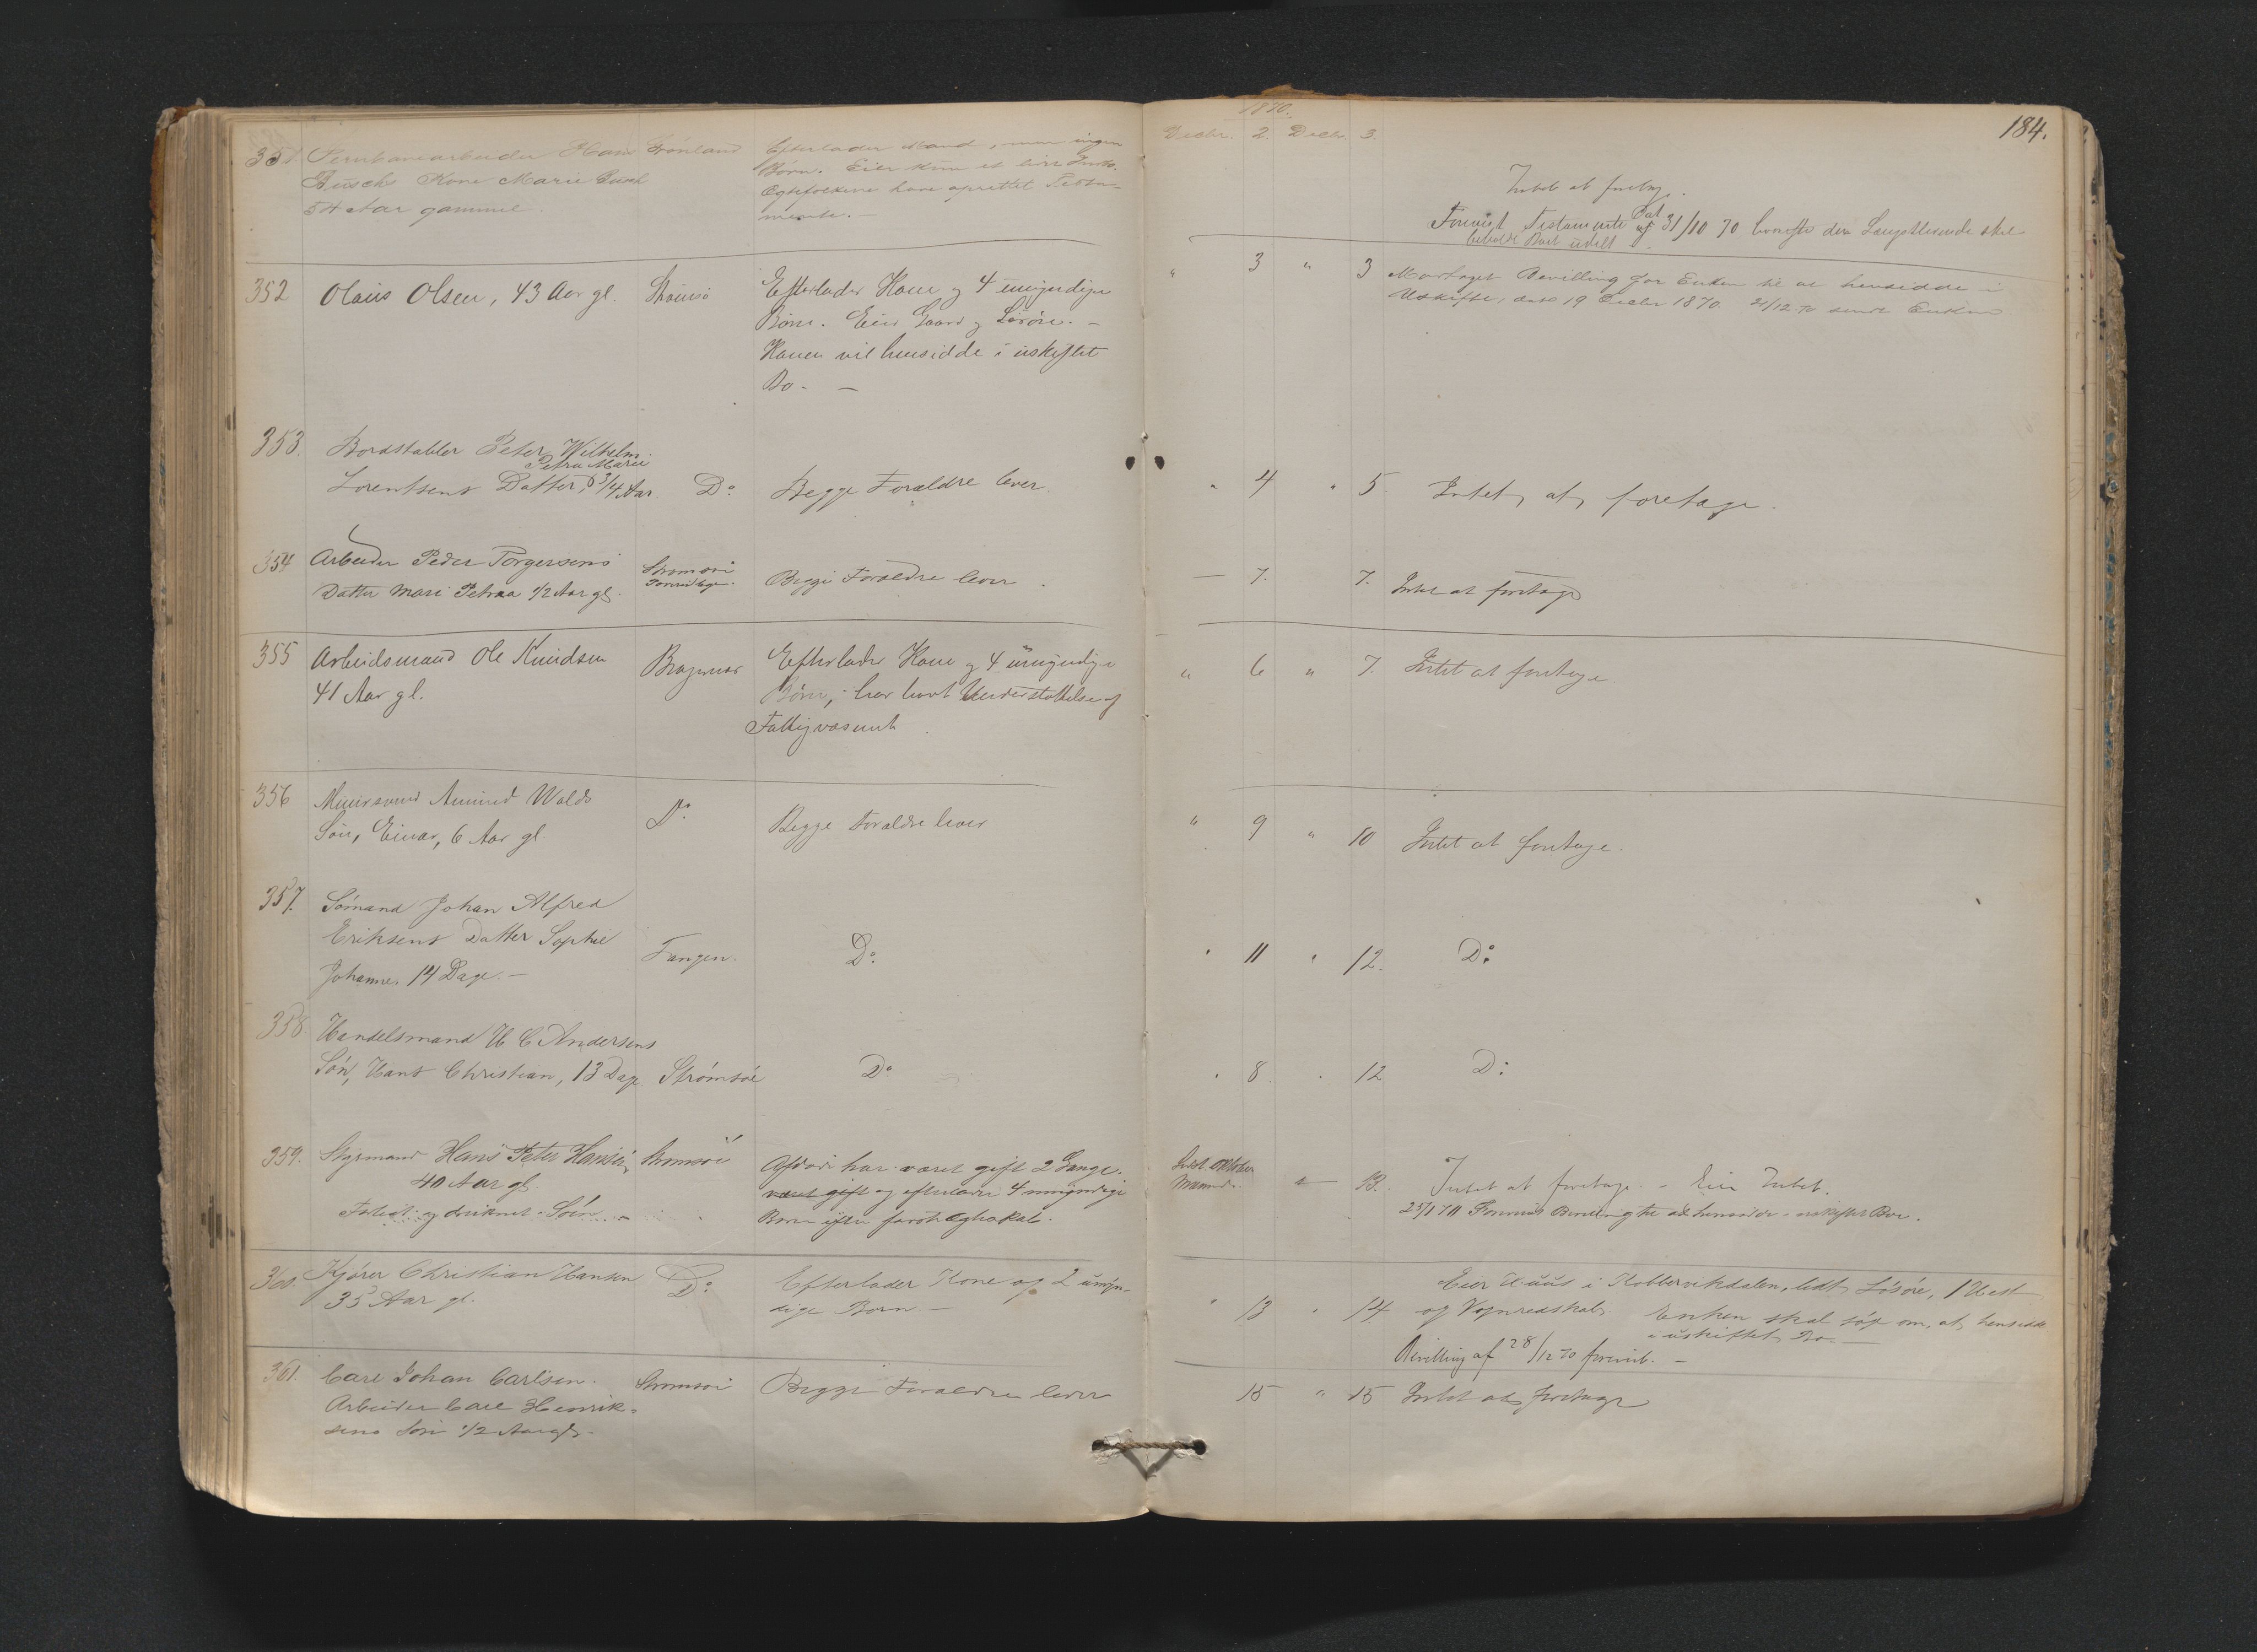 1870.
184.
351 Jernbanearbeider Hans Grønland Efterlader Mand, men ingen Decbr. 2. Decbr. 3.
Busch Kone Marie Busch Børn. Eier kun et lidet
54 Aar gammel. Egtefolkene have oprettet Testa-
mente. —
Intet at foretage.
Forevist Testamente Dat 31/10 70 hvorefter den Længstlevende skal
beholde Boet udelt
352 Olaus Olsen, 43 Aar gl. Strømsø Efterlader Kone og 4 umyndige " 3 " 3 Modtaget Bevilling for Enken til at hensidde i
Børn. Eier Gaard og Løsøre. — Uskifte, dat 19 Decbr 1870. 21/12 70 sendt Enken
Konen vil hensidde i uskiftet
Bo. —
353. Bordstabler Peter Wilhelm
Petra Marie
Lorentsens Datter, 3/4 Aar. Do Begge Forældre lever. " 4 " 5 Intet at foretage.
354 Arbeider Peder Torgersens Strømsø
Datter Mari Petraa 1/2 Aar gl. Begge Forældre lever. — 7. 7. Intet at foretage
355 Arbeidsmand Ole Knudsen Bragernæs Efterlader Kone og 4 umyndige " 6 " 7. Intet at foretage
41 Aar gl. Børn, har havt Understøttelse af
Fattigvæsenet
356 Muursvend Amund Wolds Do
Søn, Einar, 6 Aar gl Begge Forældre lever " 9 " 10 Intet at foretage.
357. Sømand Johan Alfred
Eriksens Datter Sophie Tangen. Do " 11 " 12. Do
Johanne. 14 Dage. —
358. Handelsmand H C Andersens
Søn, Hans Christian, 13 Dage Strømsøe Do " 8 " 12 Do
359. Styrmand Hans Peter Hansen, Strømsøe Afdøde har været gift 2 Gange. Sidst Oktober
40 Aar gl været gift og efterlader 4 umyndige Maaned. " 13. Intet at foretage. — Eier Intet.
Forlist og druknet i Søen — Børn efter første Ægteskab. 25/1 71 Forevist Bevilling til at hensidde i uskiftet Boe.
360. Kjører Christian Hansen Do Efterlader Kone og 2 umyn- Eier Huus i Kobbervikdalen, lidt Løsøre, 1 Hest
35 Aar gl. dige Børn. — " 13 " 14 og Vognredskab. Enken skal søge om, at hensidde
i uskiftet Bo. —
Bevilling af 28/12 70 forevist. —
361. Carl Johan Carlsen. Strømsøe Begge Forældre lever 15 " 15 Intet at foretage
Arbeider Carl Henrik-
sens Søn 1/2 Aar gl. —